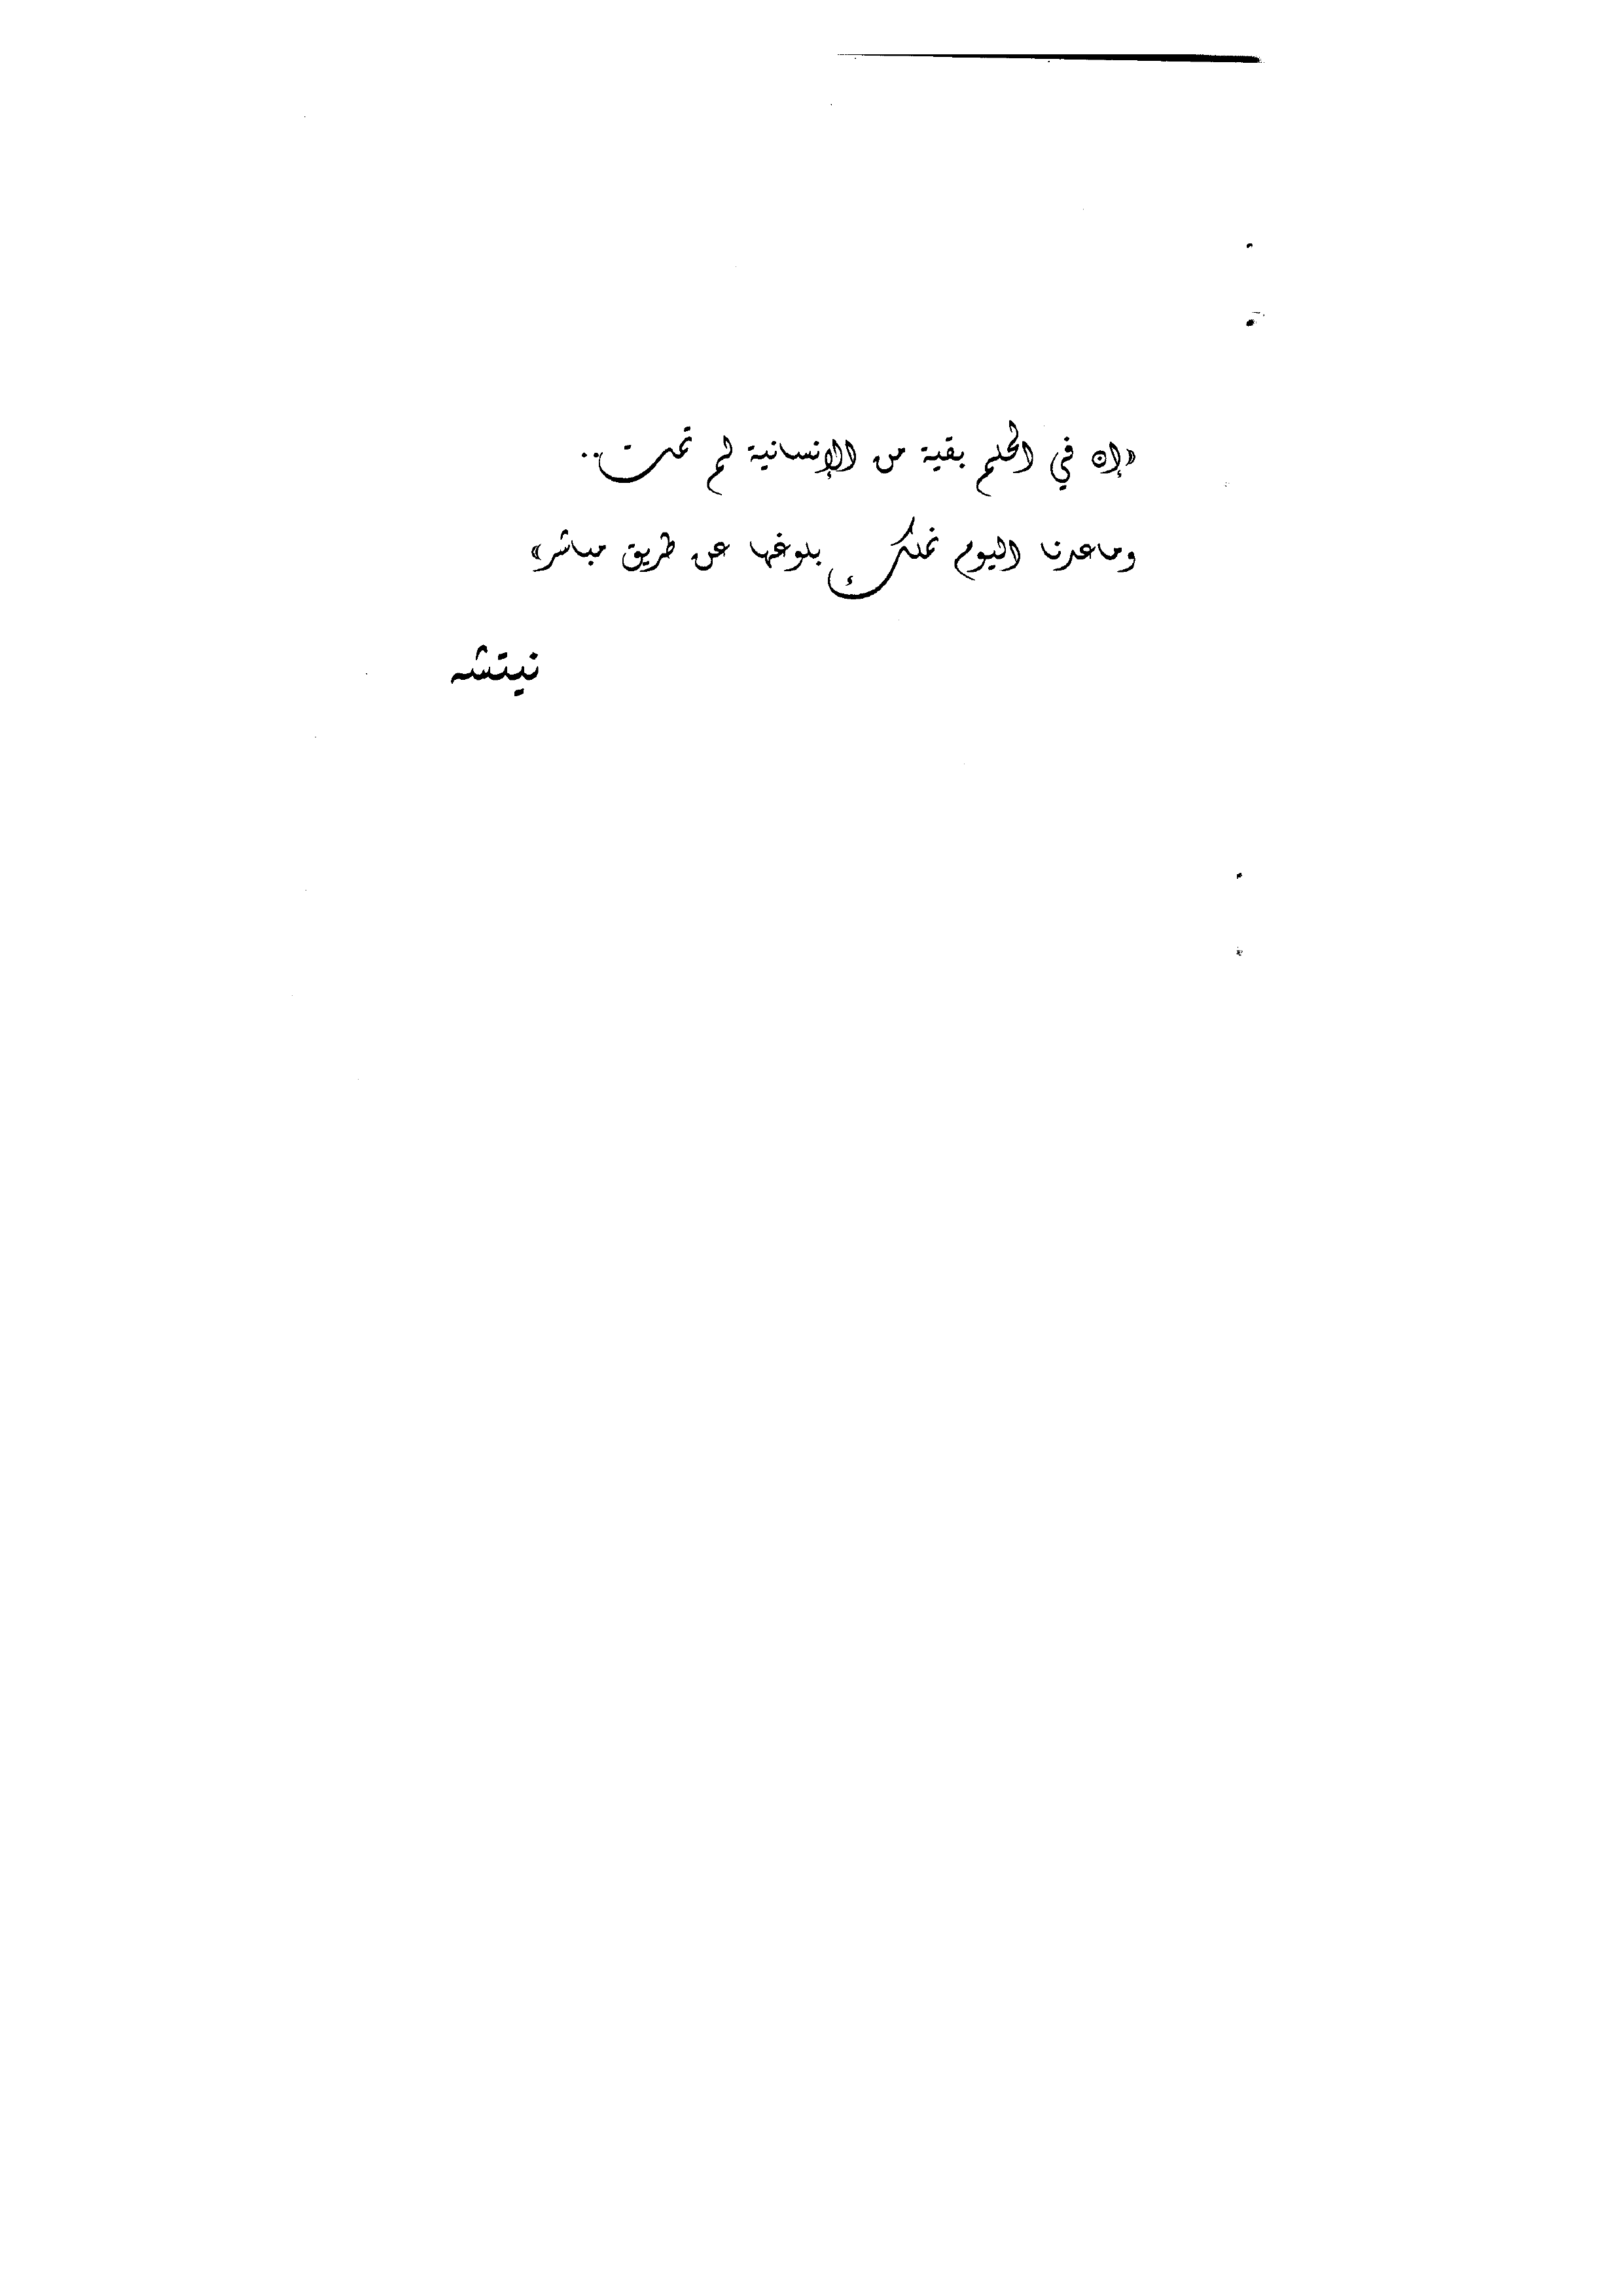 «إن في الحلم بقية من الإنسانية لم تمت..
وماعدنا اليوم نملك بلوغها عن طريق مباشر»
نيتشه